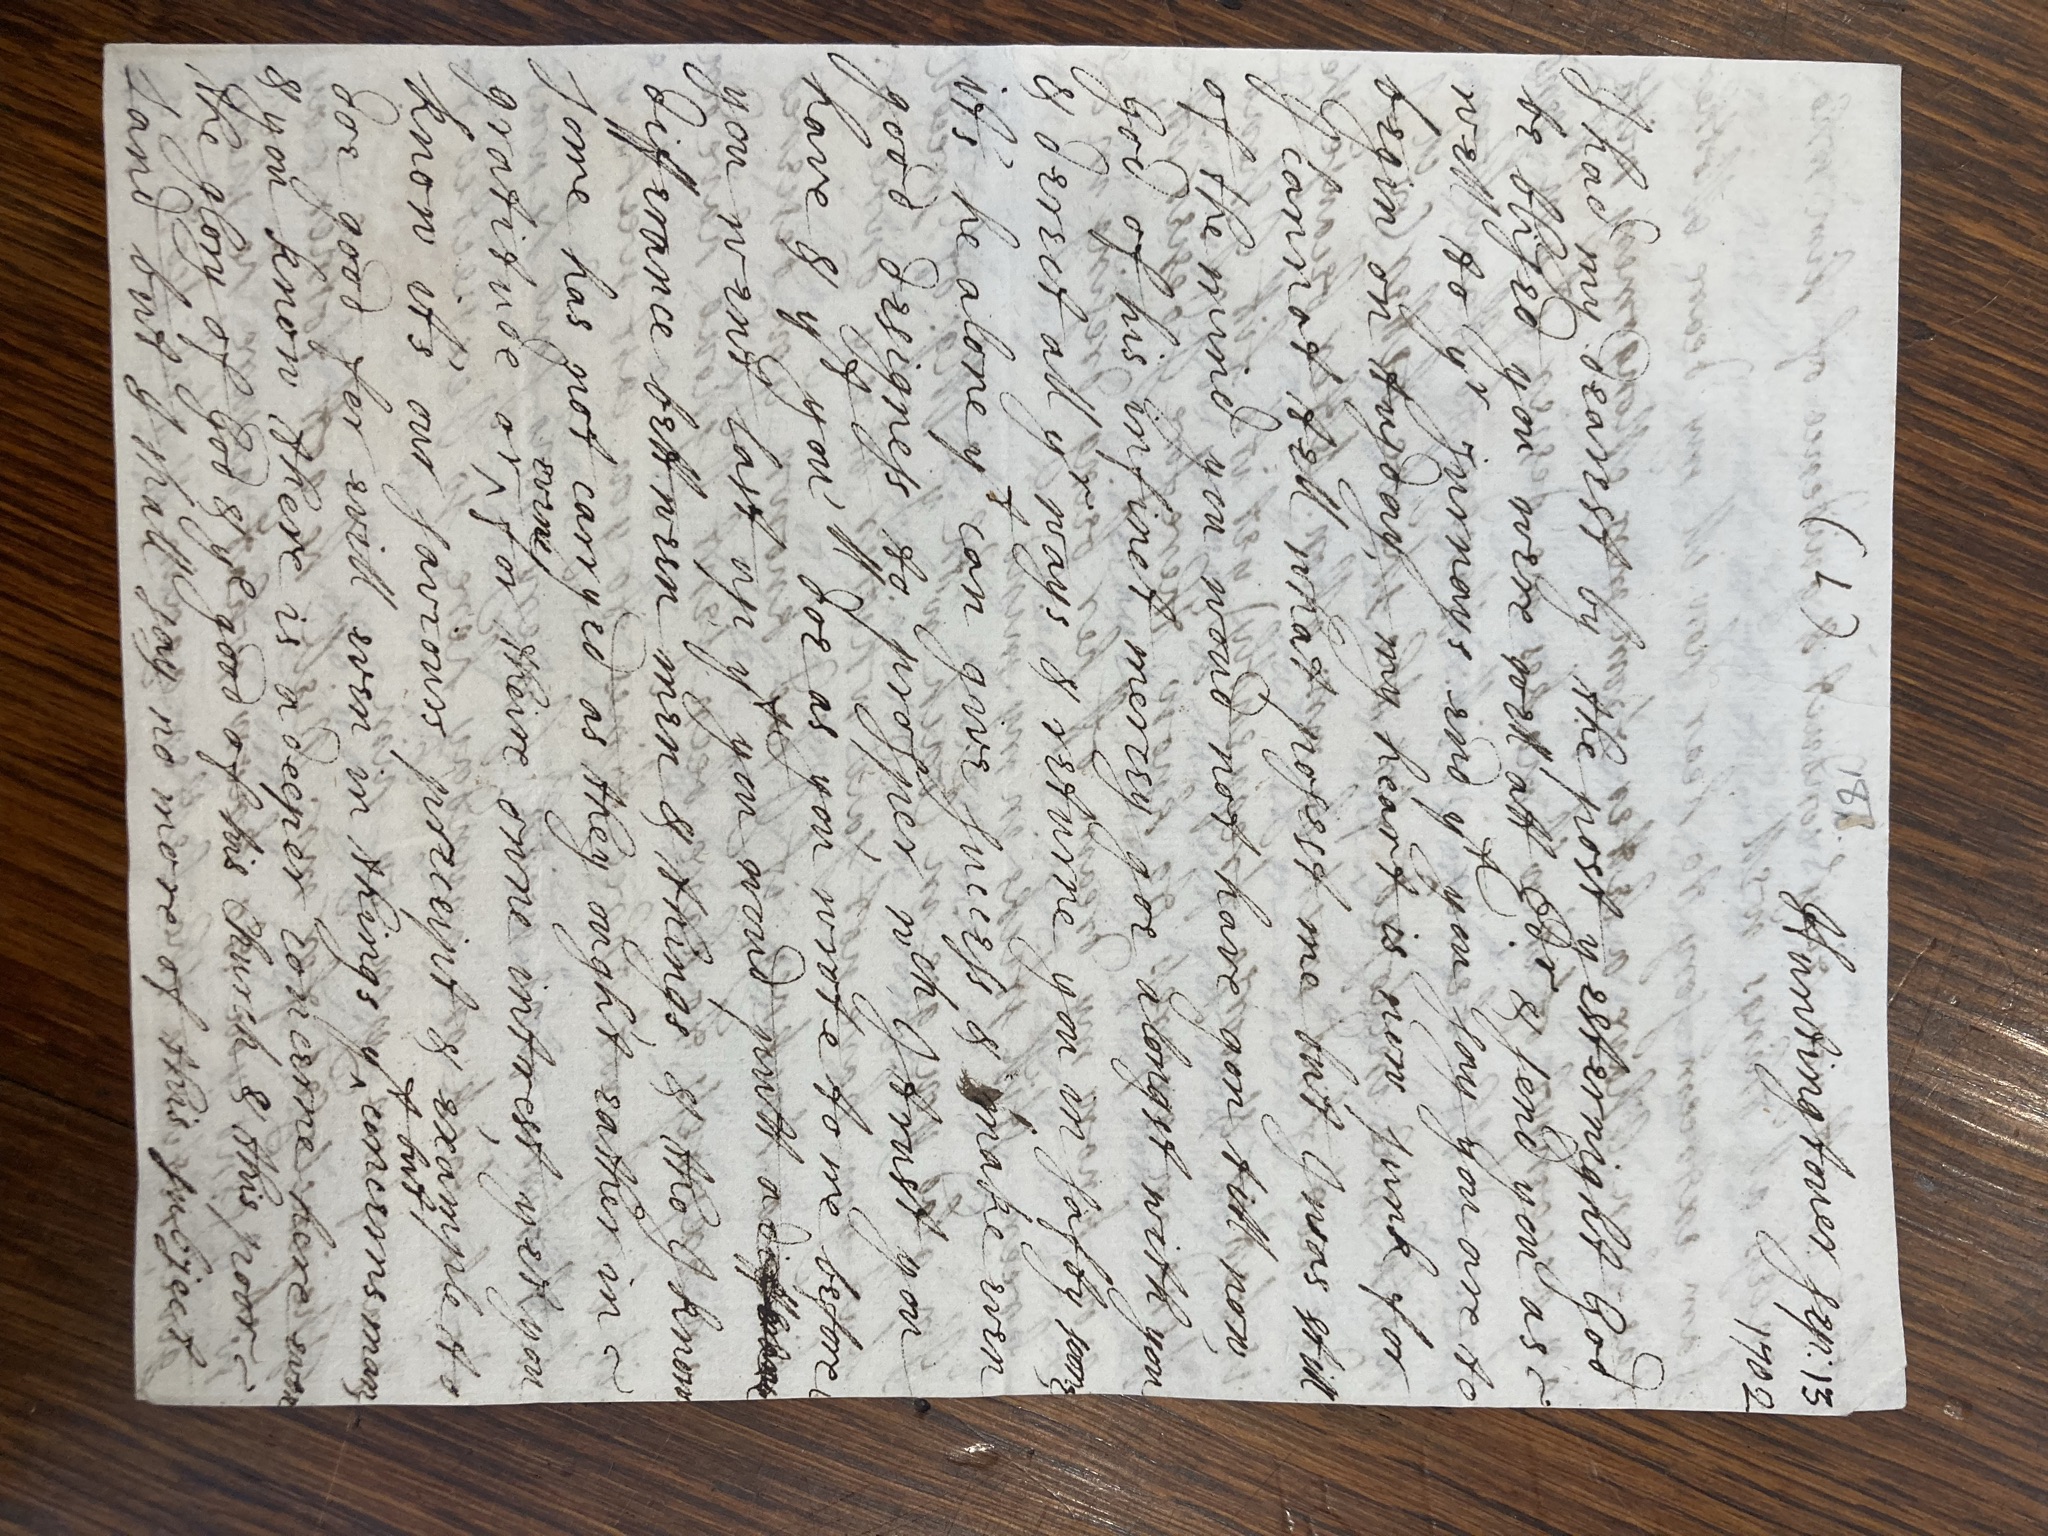 (1)
18
Huntingtouer sep: 13
1702
I had my dearest by the post yesternight God
be blised you were well att Edr. & send you as
well to yr jurnays end yt you say you are to
begin on tusday, my heart is now sunk for
I cannot tell what posest me but I was still
of the mind you woud not have gon till now,
God of his infinet mercey goe alongst with you
& derect all yr ways & returne you in safty soone,
it's he alone yt can give success & make even
good designess to prosper, wch I trust you
have & yt you'll doe as you wrote to me before
you went last up, yt you woud putt a differance
differance bettween men & things, & tho I know
some has not carryed as they ough't eather in
gratitude or evene for theire owne intrest, yet you
know it's our saviours preceipt & example to
doe good for evill even in things yt but concerns man,
& you know there is a deeper concerne here even
the glory of God & ye good of his Church & this poor
Land but I shall say no more of this subject